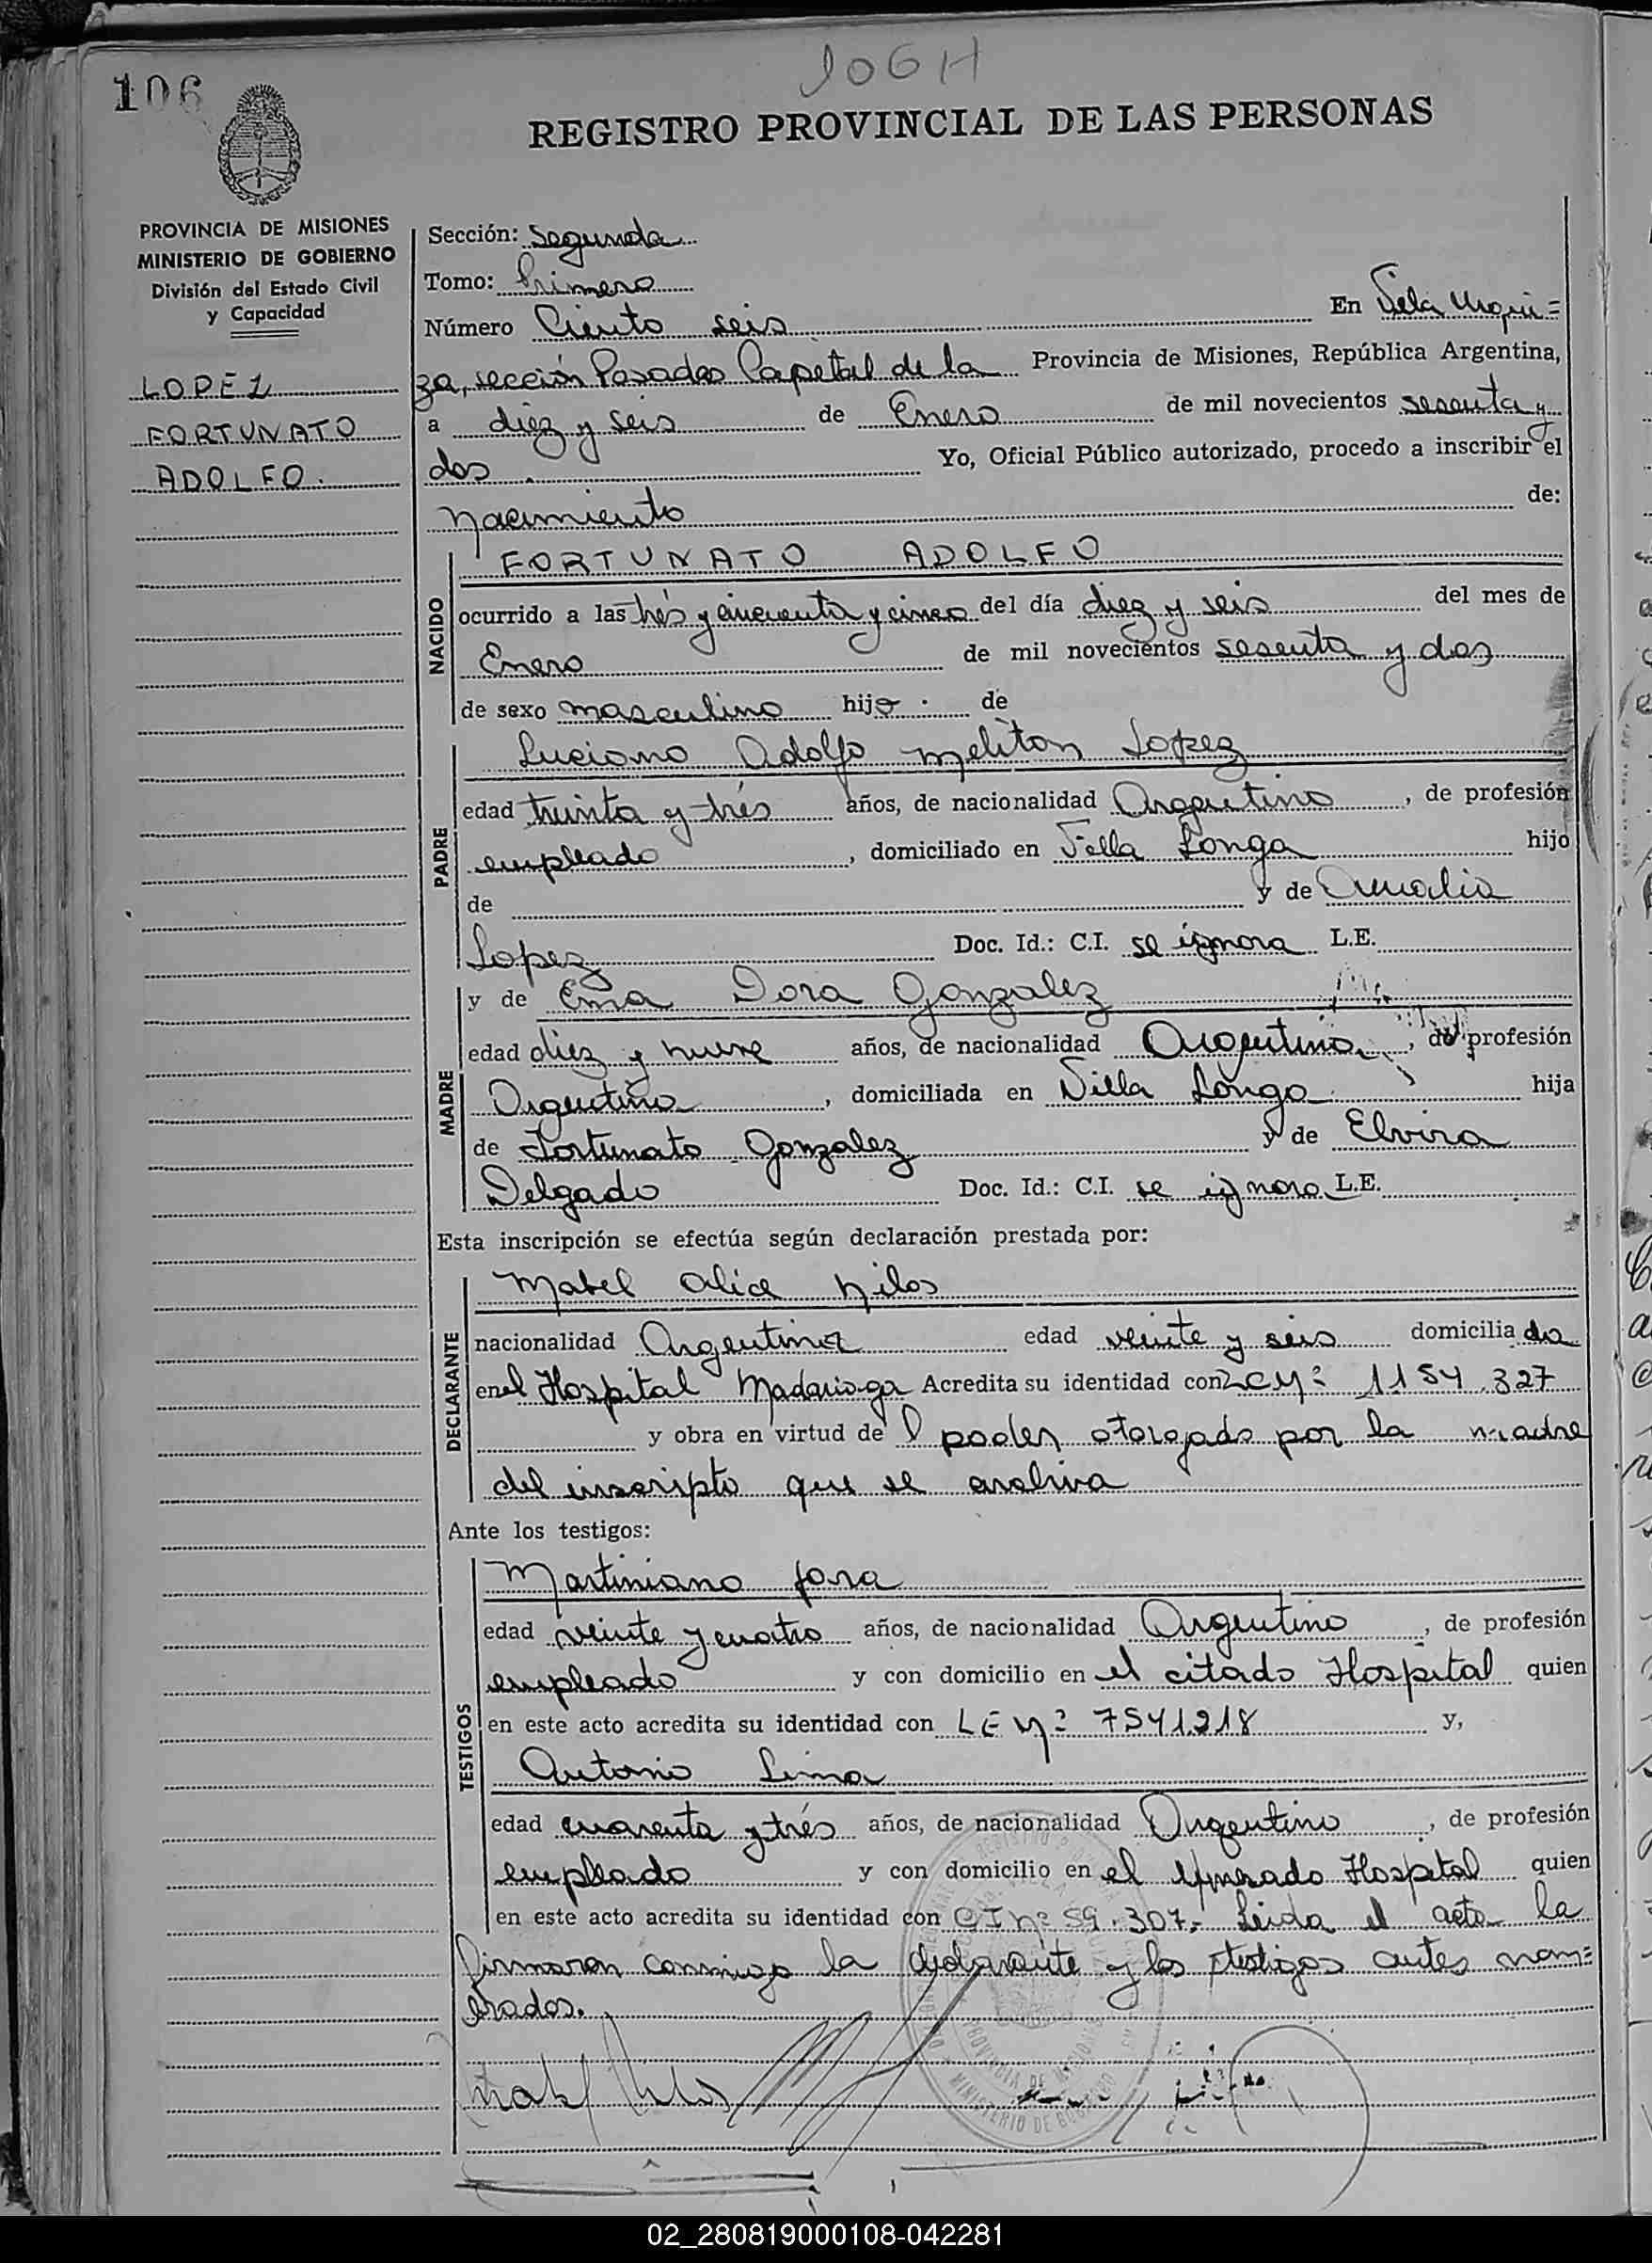 106
106 H
REGISTRO PROVINCIAL DE LAS PERSONAS
PROVINCIA DE MISIONES
MINISTERIO DE GOBIERNO
División del Estado Civil
y Capacidad
LOPEZ
FORTUNATO
ADOLFO.
Sección: Segunda
Tomo: Primero
Número Ciento seis En Vila Urqui=
za, sección Posadas Capital de la Provincia de Misiones, República Argentina,
a diez y seis de Enero de mil novecientos sesenta y
dos. Yo, Oficial Público autorizado, procedo a inscribir el
Nacimiento de:
NACIDO
FORTUNATO ADOLFO
ocurrido a las trés y cincuenta y cinco del día diez y seis del mes de
Enero de mil novecientos sesenta y dos
de sexo masculino hijo de
PADRE
Luciano Adolfo Meliton Lopez
edad treinta y trés años, de nacionalidad Argentino, de profesión
empleado, domiciliado en Villa Longa hijo
de y de Amalia
Lopez Doc. Id.: C.I. se ignora L.E.
MADRE
y de Ema Dora Gonzalez
edad diez y nueve años, de nacionalidad Argentina, de profesión
Argentina, domiciliada en Villa Longa hija
de Fortunato Gonzalez y de Elvira
Delgado Doc. Id.: C.I. se ignora L.E.
Esta inscripción se efectúa según declaración prestada por:
DECLARANTE
Mabel Alice Nilos
nacionalidad Argentina edad veinte y seis domiciliada
en el Hospital Madariaga Acredita su identidad con 1154.327
y obra en virtud del poder otorgado por la madre
del inscripto que se archiva
Ante los testigos:
TESTIGOS
Martiniano Jara
edad veinte y cuatro años, de nacionalidad Argentino, de profesión
empleado y con domicilio en el citado Hospital quien
en este acto acredita su identidad con LE Nº 7541218 y,
Antonio Lima
edad cuarenta y trés años, de nacionalidad Argentino, de profesión
empleado y con domicilio en el Hospital quien
en este acto acredita su identidad con CI Nº 59.307.- Leida el acta la
firmaron conmigo la declarante y los testigos antes nom=
brados.
PROVINCIA DE MISIONES
MINISTERIO DE GOBIERNO
02_280819000108-042281